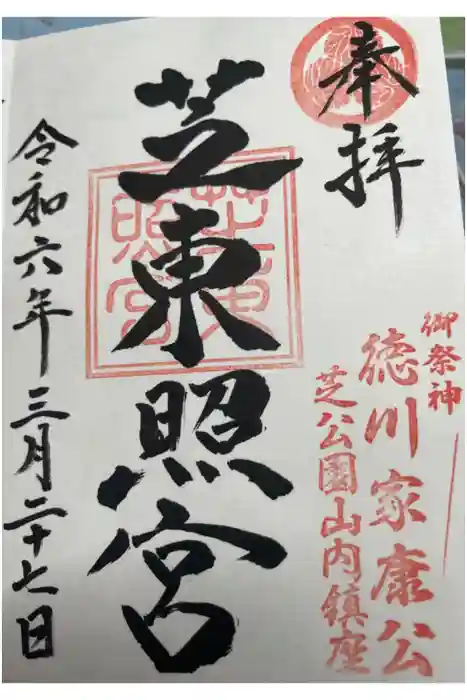 奉拝
御祭神
徳川家康公
芝公園山内鎮座
芝東照宮
芝東照宮
令和六年三月二十七日